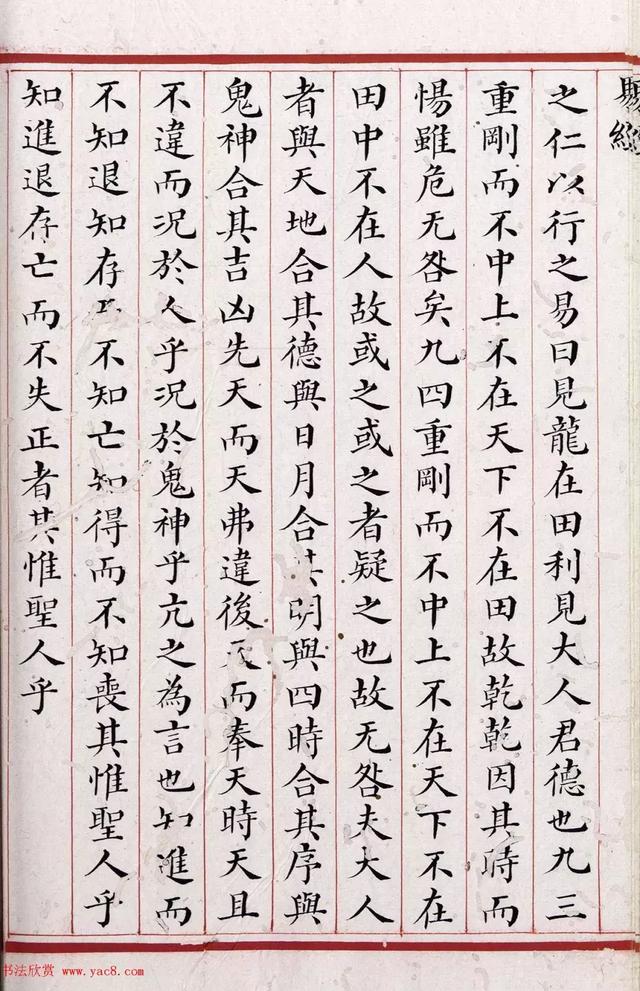 之仁以行之易曰見龍在田利見大人君德也九三
重剛而不中上不在天下不在田故乾乾因其時而
惕雖危无咎矣九四重剛而不中上不在天下不在
田中不在人故或之或之者疑之也故无咎夫大人
者與天地合其德與日月合其明與四時合其序與
鬼神合其吉凶先天而天弗違後天而奉天時天且
不違而況於人乎況於鬼神乎亢之為言也知進而
不知退知存不知亡知得而不知喪其惟聖人乎
知進退存亡而不失正者其惟聖人乎
书法欣赏 www.yac8.com